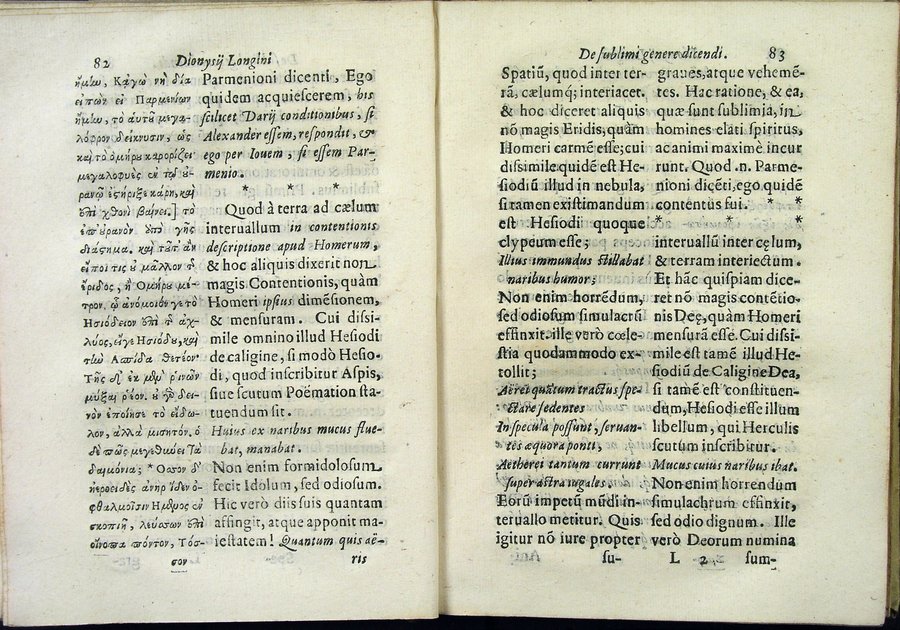 82 Dionysij Longini
ἥμλυ, Κᾀγὼ νὴ δία
εἰπὼν εἰ Παρμενίων
ἤμλυ, τὸ αὑτοῦ μεγα-
λόφρον δείκνυσιν, ὡς
καὶ τὸ ὁμήρου
μεγαλοφυὲς ἐν τῷ οὐ-
ρανῷ ἐςήριξε κάρη, καὶ
ἐπὶ χθονὶ βαίνει.] τὸ
ἐπ' οὐρανὸν ἀπὸ γῆς
διάςημα. καὶ τοῦτ' ἂν
εἴποι τις οὐ μᾶλλον τ
ἔριδος, ἢ Ὁμήρου μέ-
τρον. ᾧ ἀνόμοιόν γε τὸ
Ἡσιόδειον ἐπὶ τ ἀχ-
λύος, εἴγε Ἡσιόδου, καὶ
τὼ Ἀσπίδα θετέον.
Τῆς δ' ἐκ μὲν ῥινῶν
μύξαι ῥέον. οὐ γὸ δει-
νὸν ἐποίησε τὸ εἴδω-
λον, ἀλλὰ μισητόν. ὁ
δὲ πῶς μεγεθύνει Τὰ
δαιμόνια; * Ὅσσον δ'
ἠεροειδὲς ἀνὴρ ἴδεν ὀ-
φθαλμοῖσιν Ἥμενος ἐν
σκοπιῇ, λεύσσων ἐπὶ
οἴνοπα πόντον, Τόσ-
σον
Parmenioni dicenti, Ego
quidem acquiescerem, his
scilicet Darij conditionibus, si
Alexander essem, respondit, &
ego per Iouem, si essem Par-
menio.
* * *
Quod à terra ad cælum
interuallum in contentionis
descriptione apud Homerum,
& hoc aliquis dixerit non
magis Contentionis, quàm
Homeri ipsius dimēsionem,
& mensuram. Cui dissi-
mile omnino illud Hesiodi
de caligine, si modò Hesio-
di, quod inscribitur Aspis,
siue scutum Poëmation sta-
tuendum sit.
Huius ex naribus mucus flue-
bat, manabat.
Non enim formidolosum
fecit Idolum, sed odiosum.
Hic verò diis suis quantam
affingit, atque apponit ma-
iestatem! Quantum quis aë-
ris
De sublimi genere dicendi. 83
Spatiū, quod inter ter-
rā, cælumq; interiacet.
& hoc diceret aliquis
nō magis Eridis, quàm
Homeri carmē esse; cui
dissimile quidē est He-
siodiū illud in nebula,
si tamen existimandum
est Hesiodi quoque
clypeum esse;
Illius immundus stillabat
naribus humor;
Non enim horrēdum,
sed odiosum simulacrū
effinxit. ille verò cœle-
stia quodammodo ex-
tollit;
Aërei quātum tractus spe-
ctare sedentes
In specula possunt, seruan-
tes æquora ponti,
Aetherei tantum currunt
super astra iugales.
Eorū impetū mūdi in-
teruallo metitur. Quis
igitur nō iure propter
su-
graues, atque vehemē-
tes. Hac ratione, & ea,
quæ sunt sublimia, in
homines elati spiritus,
ac animi maximè incur
runt. Quod .n. Parme-
nioni dicēti, ego quidē
contentus fui. * *
* * *
interuallū inter cęlum,
& terram interiectum.
Et hāc quispiam dice-
ret nō magis contētio-
nis Deę, quàm Homeri
mensurā esse. Cui dissi-
mile est tamē illud He-
siodiū de Caligine Dea,
si tamē est constituen-
dum, Hesiodi esse illum
libellum, qui Herculis
scutum inscribitur.
Mucus cuius naribus ibat.
Non enim horrendum
simulachrum effinxit,
sed odio dignum. Ille
verò Deorum numina
L 2 sum-